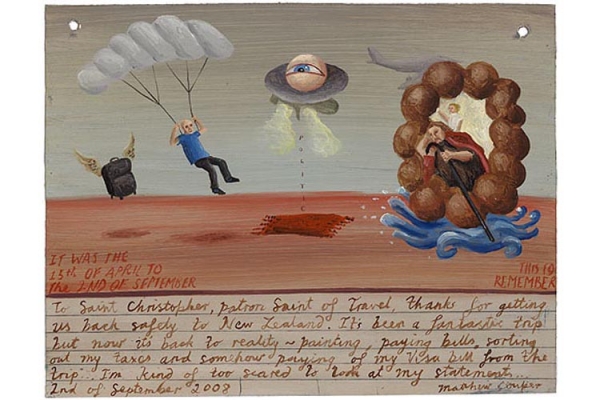 POLITIC
IT WAS THE
13th OF APRIL TO
The END OF SEPTEMBER
THIS IS
REMEMBER
To Saint Christopher, patron Saint of Travel, thanks for getting
us back safely to New Zealand. It's been a fantastic trip
but now its back to reality ~ painting, paying bills, sorting
out my taxes and somehow paying of my Visa bill from the
trip... I'm kind of too scared to look at my statement...
2nd of September 2008
Matthew Couper